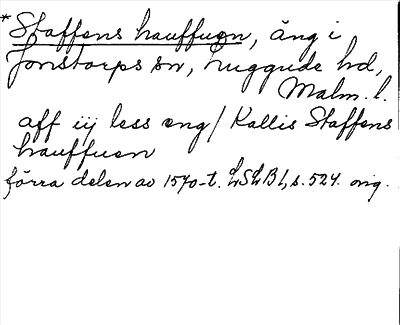 * Staffens hauffuen, äng i
Jonstorps sn, Luggude hd,
Malm. l.
aff iij less eng / Kallis Staffens
hauffuen
förra delen av 1570-t. LSLB 1, s. 524. orig.